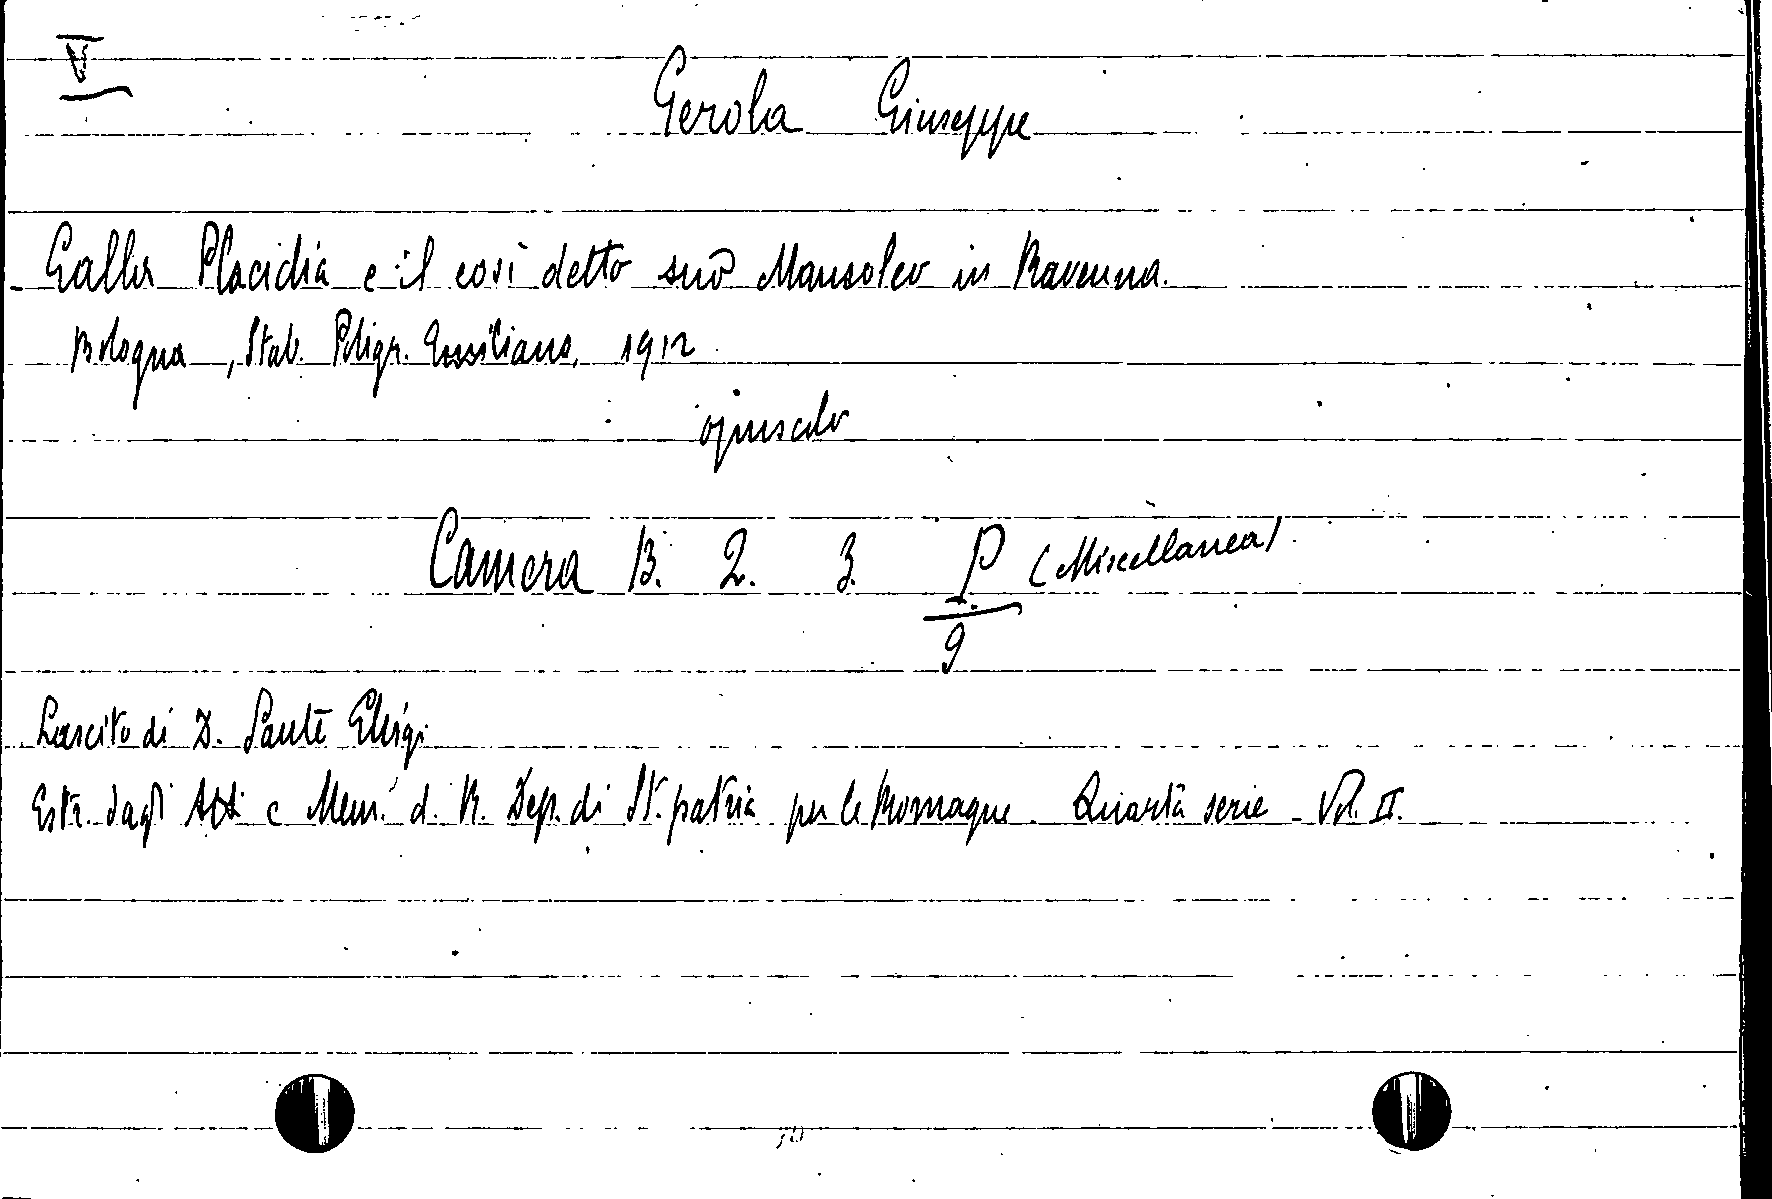 V
Gerola Giuseppe
Galla Placidia e il così detto suo Mausoleo in Ravenna.
Bologna, Stab. Poligr. Emiliano, 1912
opuscolo
Camera B. 2. 3. P. (Miscellanea)
9
Lascito di D. Sante Ghigi
Estr. dagli Atti e Mem. d. R. Dep. di St. patria per le Romagne. Quarta serie Vol. II.